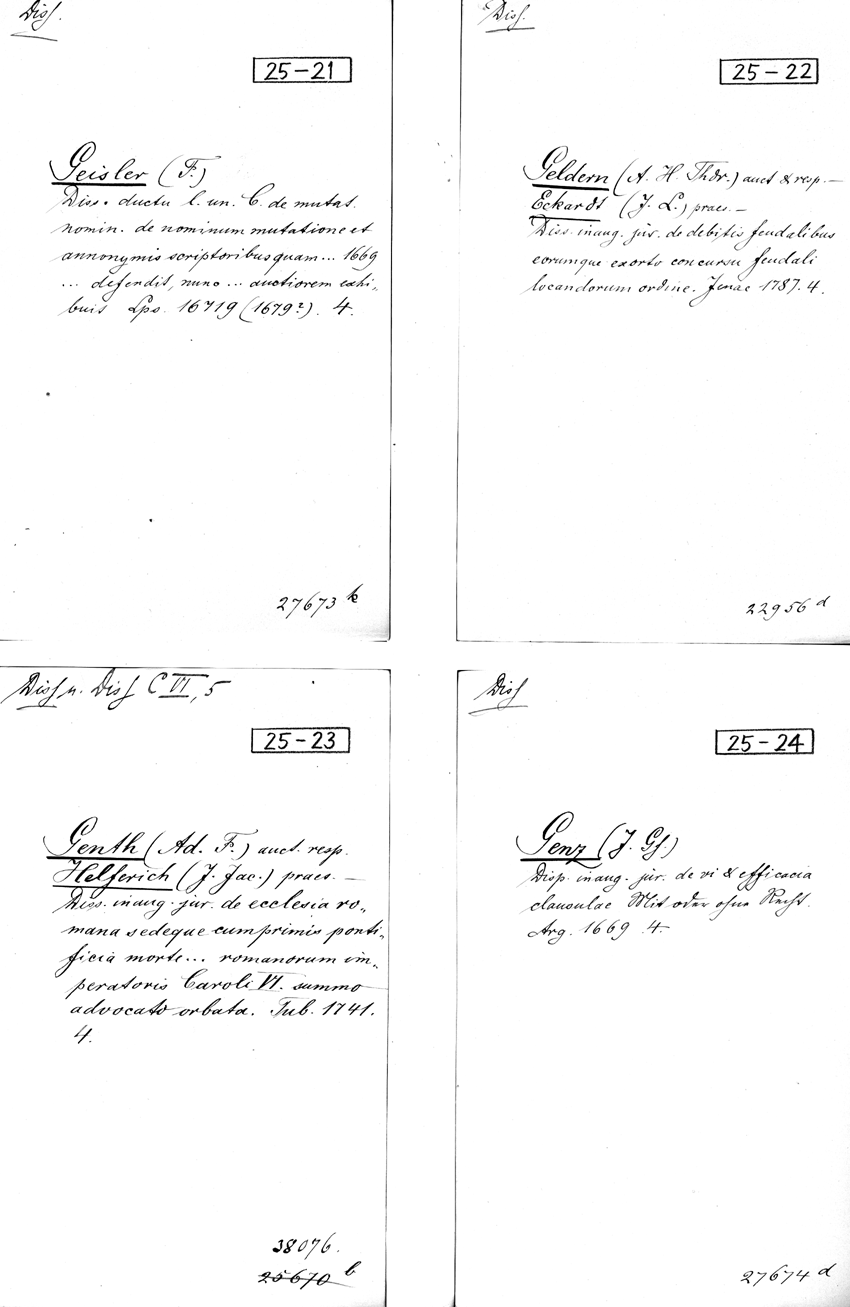 Diss.
25-21
Geisler (F.)
Diss. ductu l. un. C. de mutat.
nomin. de nominum mutatione et
annonymis scriptoribus quam... 1669
... defendit, nunc ... auctiorem exhi-
buis Lps. 16719 (1679?). 4.
27673 k
Diss.
25-22
Geldern (A. H. Thdr.) auct & resp. —
Eckardt (J. L.) praes. —
Diss. inaug. jur. de debitis feudalibus
eorumque exorto concursu feudali
locandorum ordine. Jenae 1787. 4.
22956 d
Diss u. Diss C VI, 5
25-23
Genth (Ad. F.) auct. resp.
Helferich (J. Jac.) praes. —
Diss. inaug. jur. de ecclesia ro-
mana sedeque cumprimis ponti-
ficia morte... romanorum im-
peratoris Caroli VI. summo
advocato orbata. Tub. 1741.
4.
38076.
25670 b
Diss
25-24
Genz (J. Gf.)
Disp. inaug. jur. de vi & efficacia
clausulae Mit oder ohne Recht.
Arg. 1669. 4.
27674 d